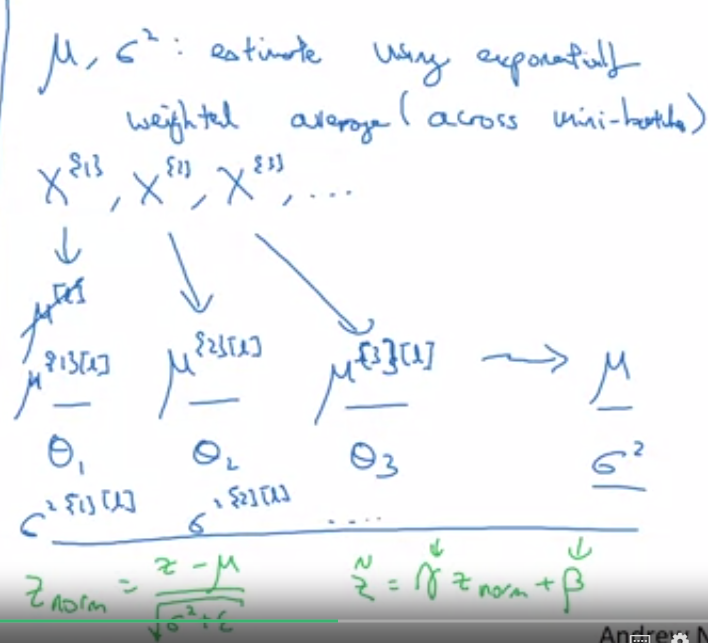 μ, σ² : estimate using exponentially
weighted average (across mini-batches)
X^{1}, X^{2}, X^{3}, ...
μ^[l]
μ^{1}[l] μ^{2}[l] μ^{3}[l] → μ
θ₁ θ₂ θ₃ σ²
σ²^{1}[l] σ²^{2}[l] ....
z_norm = (z - μ) / √(σ² + ε) z̃ = γ z_norm + β
Andrew N